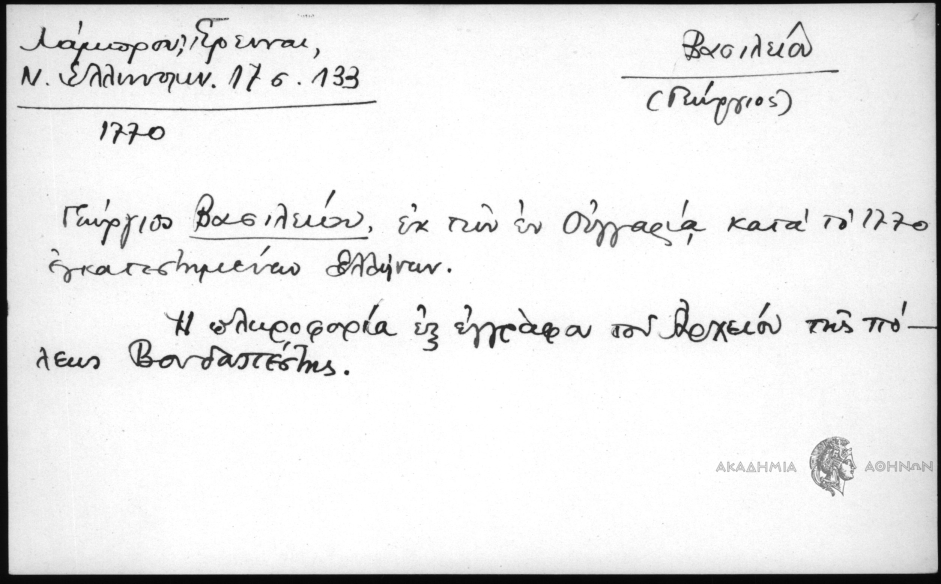 Λάμπρου, Ἔρευναι,
Ν. Ἑλληνομν. 17 σ. 133
1770
Βασιλείου
(Γεώργιος)
Γεώργιος Βασιλείου, ἐκ τῶν ἐν Οὑγγαρίᾳ κατὰ τὸ 1770
ἐγκατεστημένων Ἑλλήνων.
Ἡ πληροφορία ἐξ ἐγγράφου τοῦ Ἀρχείου τῆς πό-
λεως Βουδαπέστης.
ΑΚΑΔΗΜΙΑ ΑΘΗΝΩΝ